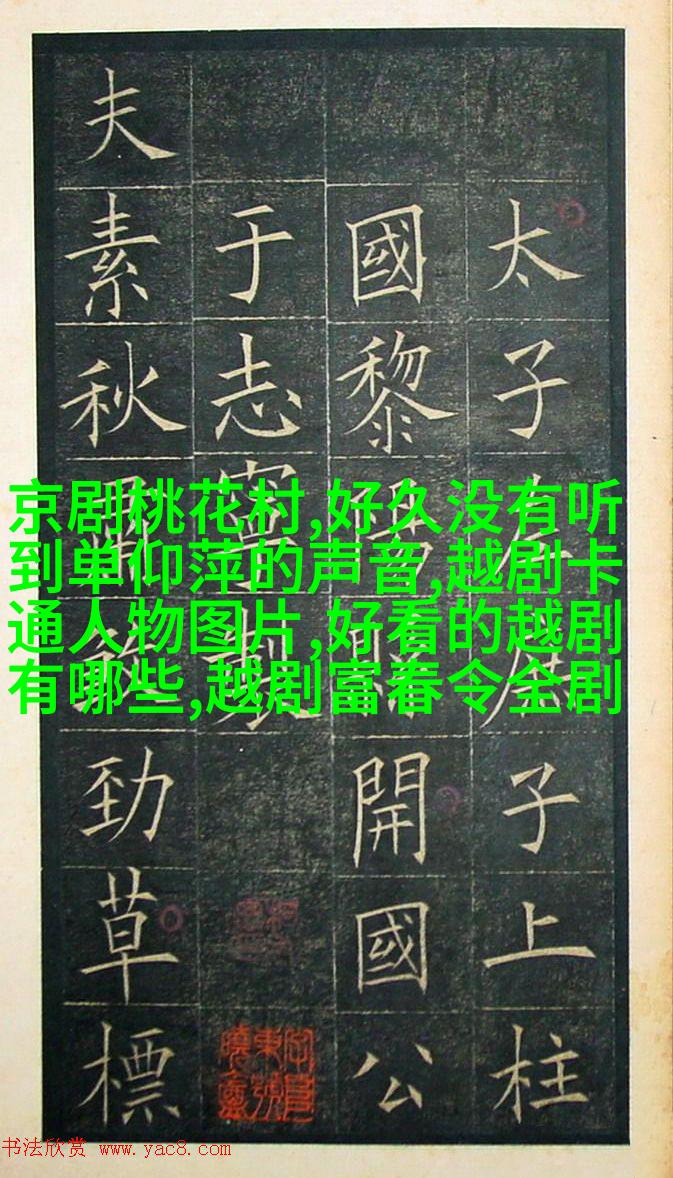 太子左子上柱
國黎開國公
于志寧製
夫素秋勁草標
京剧桃花村,好久没有听
到单仰萍的声音,越剧卡
通人物图片,好看的越剧
有哪些,越剧富春令全剧
书法欣赏 www.yac8.com